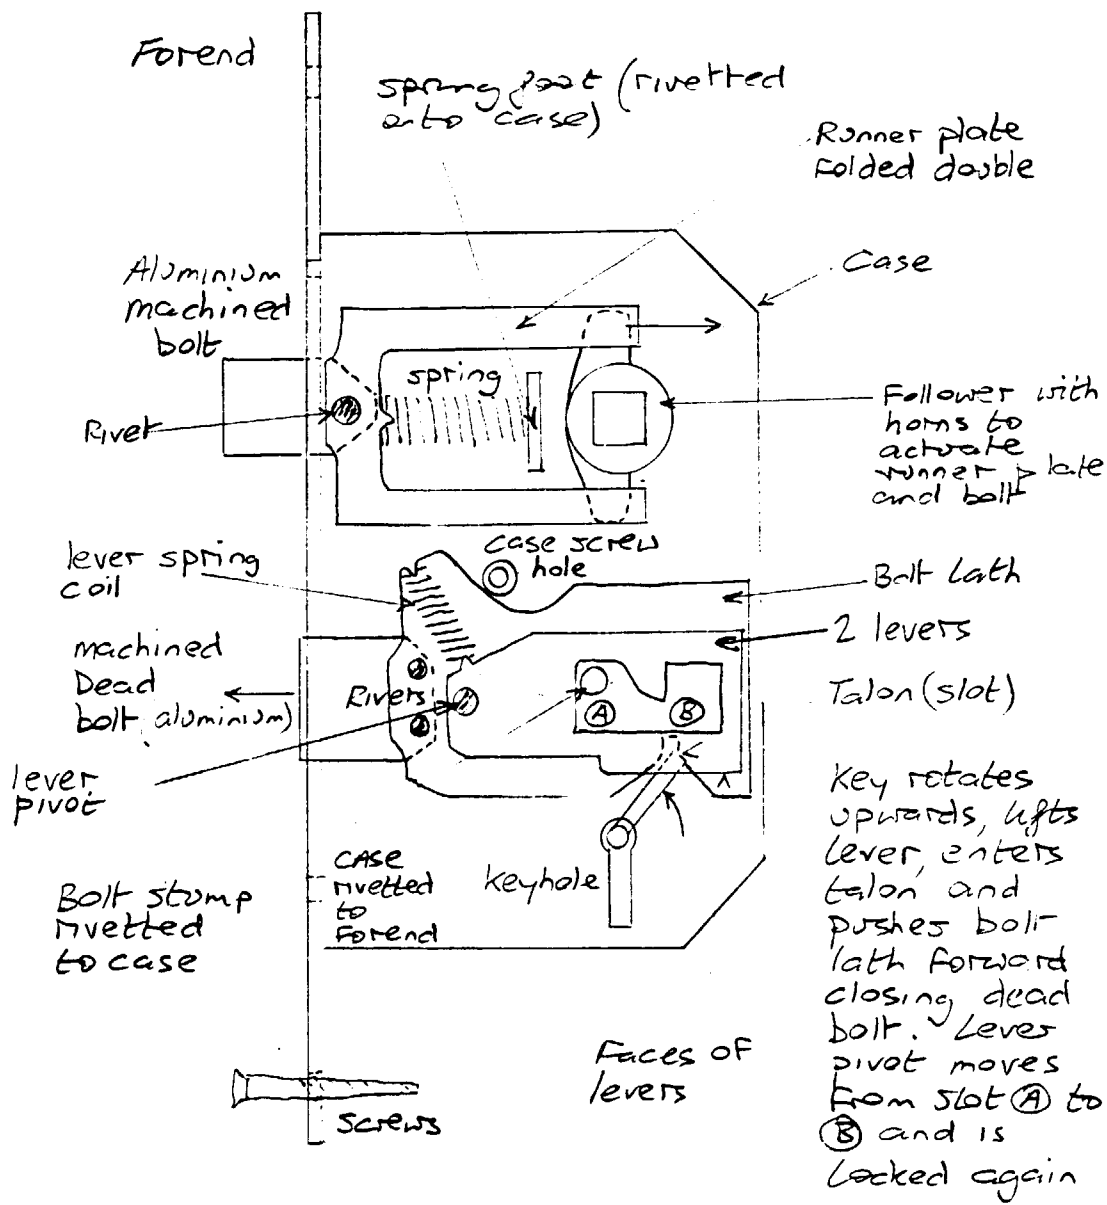 Forend
spring foot (rivetted
onto case)
Runner plate
Folded double
Case
Aluminium
machined
bolt
spring
Rivet
Follower with
horns to
actuate
runner plate
and bolt
case screw
hole
lever spring
coil
Bolt Lath
2 levers
machined
Dead
bolt aluminium)
Rivers
Talon (slot)
A
B
lever
pivot
Key rotates
upwards, lifts
lever, enters
talon and
pushes bolt
lath forward
closing dead
bolt. Lever
pivot moves
From slot A to
B and is
Locked again
keyhole
CASE
rivetted
to
Forend
Bolt stump
rivetted
to case
Faces of
levers
screws